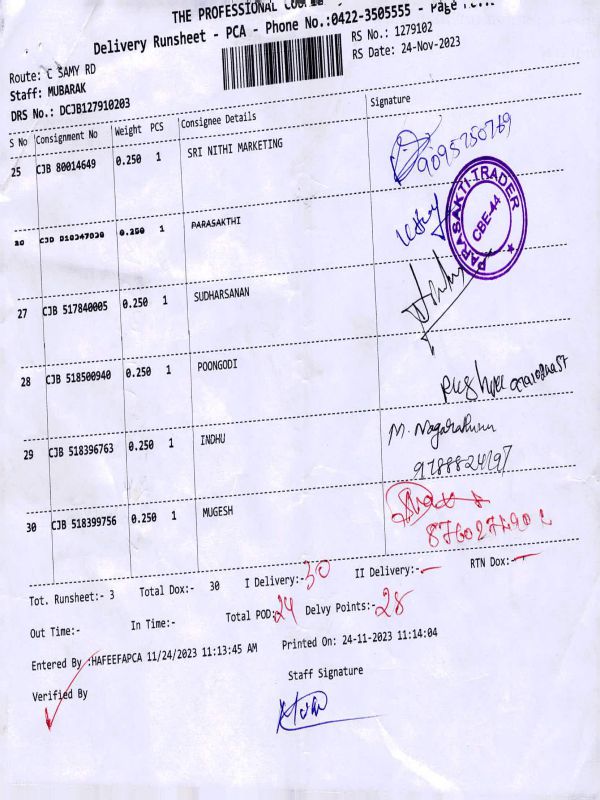 THE PROFESSIONAL
Delivery Runsheet - PCA - Phone No.:0422-3505555 - Page
Route: C SAMY RD
RS No.: 1279102
Staff: MUBARAK
RS Date: 24-Nov-2023
DRS No.: DCJB127910203
S No Consignment No Weight PCS Consignee Details Signature
25 CJB 80014649 0.250 1 SRI NITHI MARKETING
9095750769
0.250 1 PARASAKTHI
PARASAKTI TRADER
CBE-44
27 CJB 517840005 0.250 1 SUDHARSANAN
28 CJB 518500940 0.250 1 POONGODI
29 CJB 518396763 0.250 1 INDHU
M. Nagarathinam
9788824197
30 CJB 518399756 0.250 1 MUGESH
Tot. Runsheet:- 3 Total Dox:- 30 I Delivery:- 30 II Delivery:- - RTN Dox:- -
Out Time:- In Time:- Total POD: 24 Delvy Points:- 28
Entered By :HAFEEFAPCA 11/24/2023 11:13:45 AM Printed On: 24-11-2023 11:14:04
Verified By Staff Signature